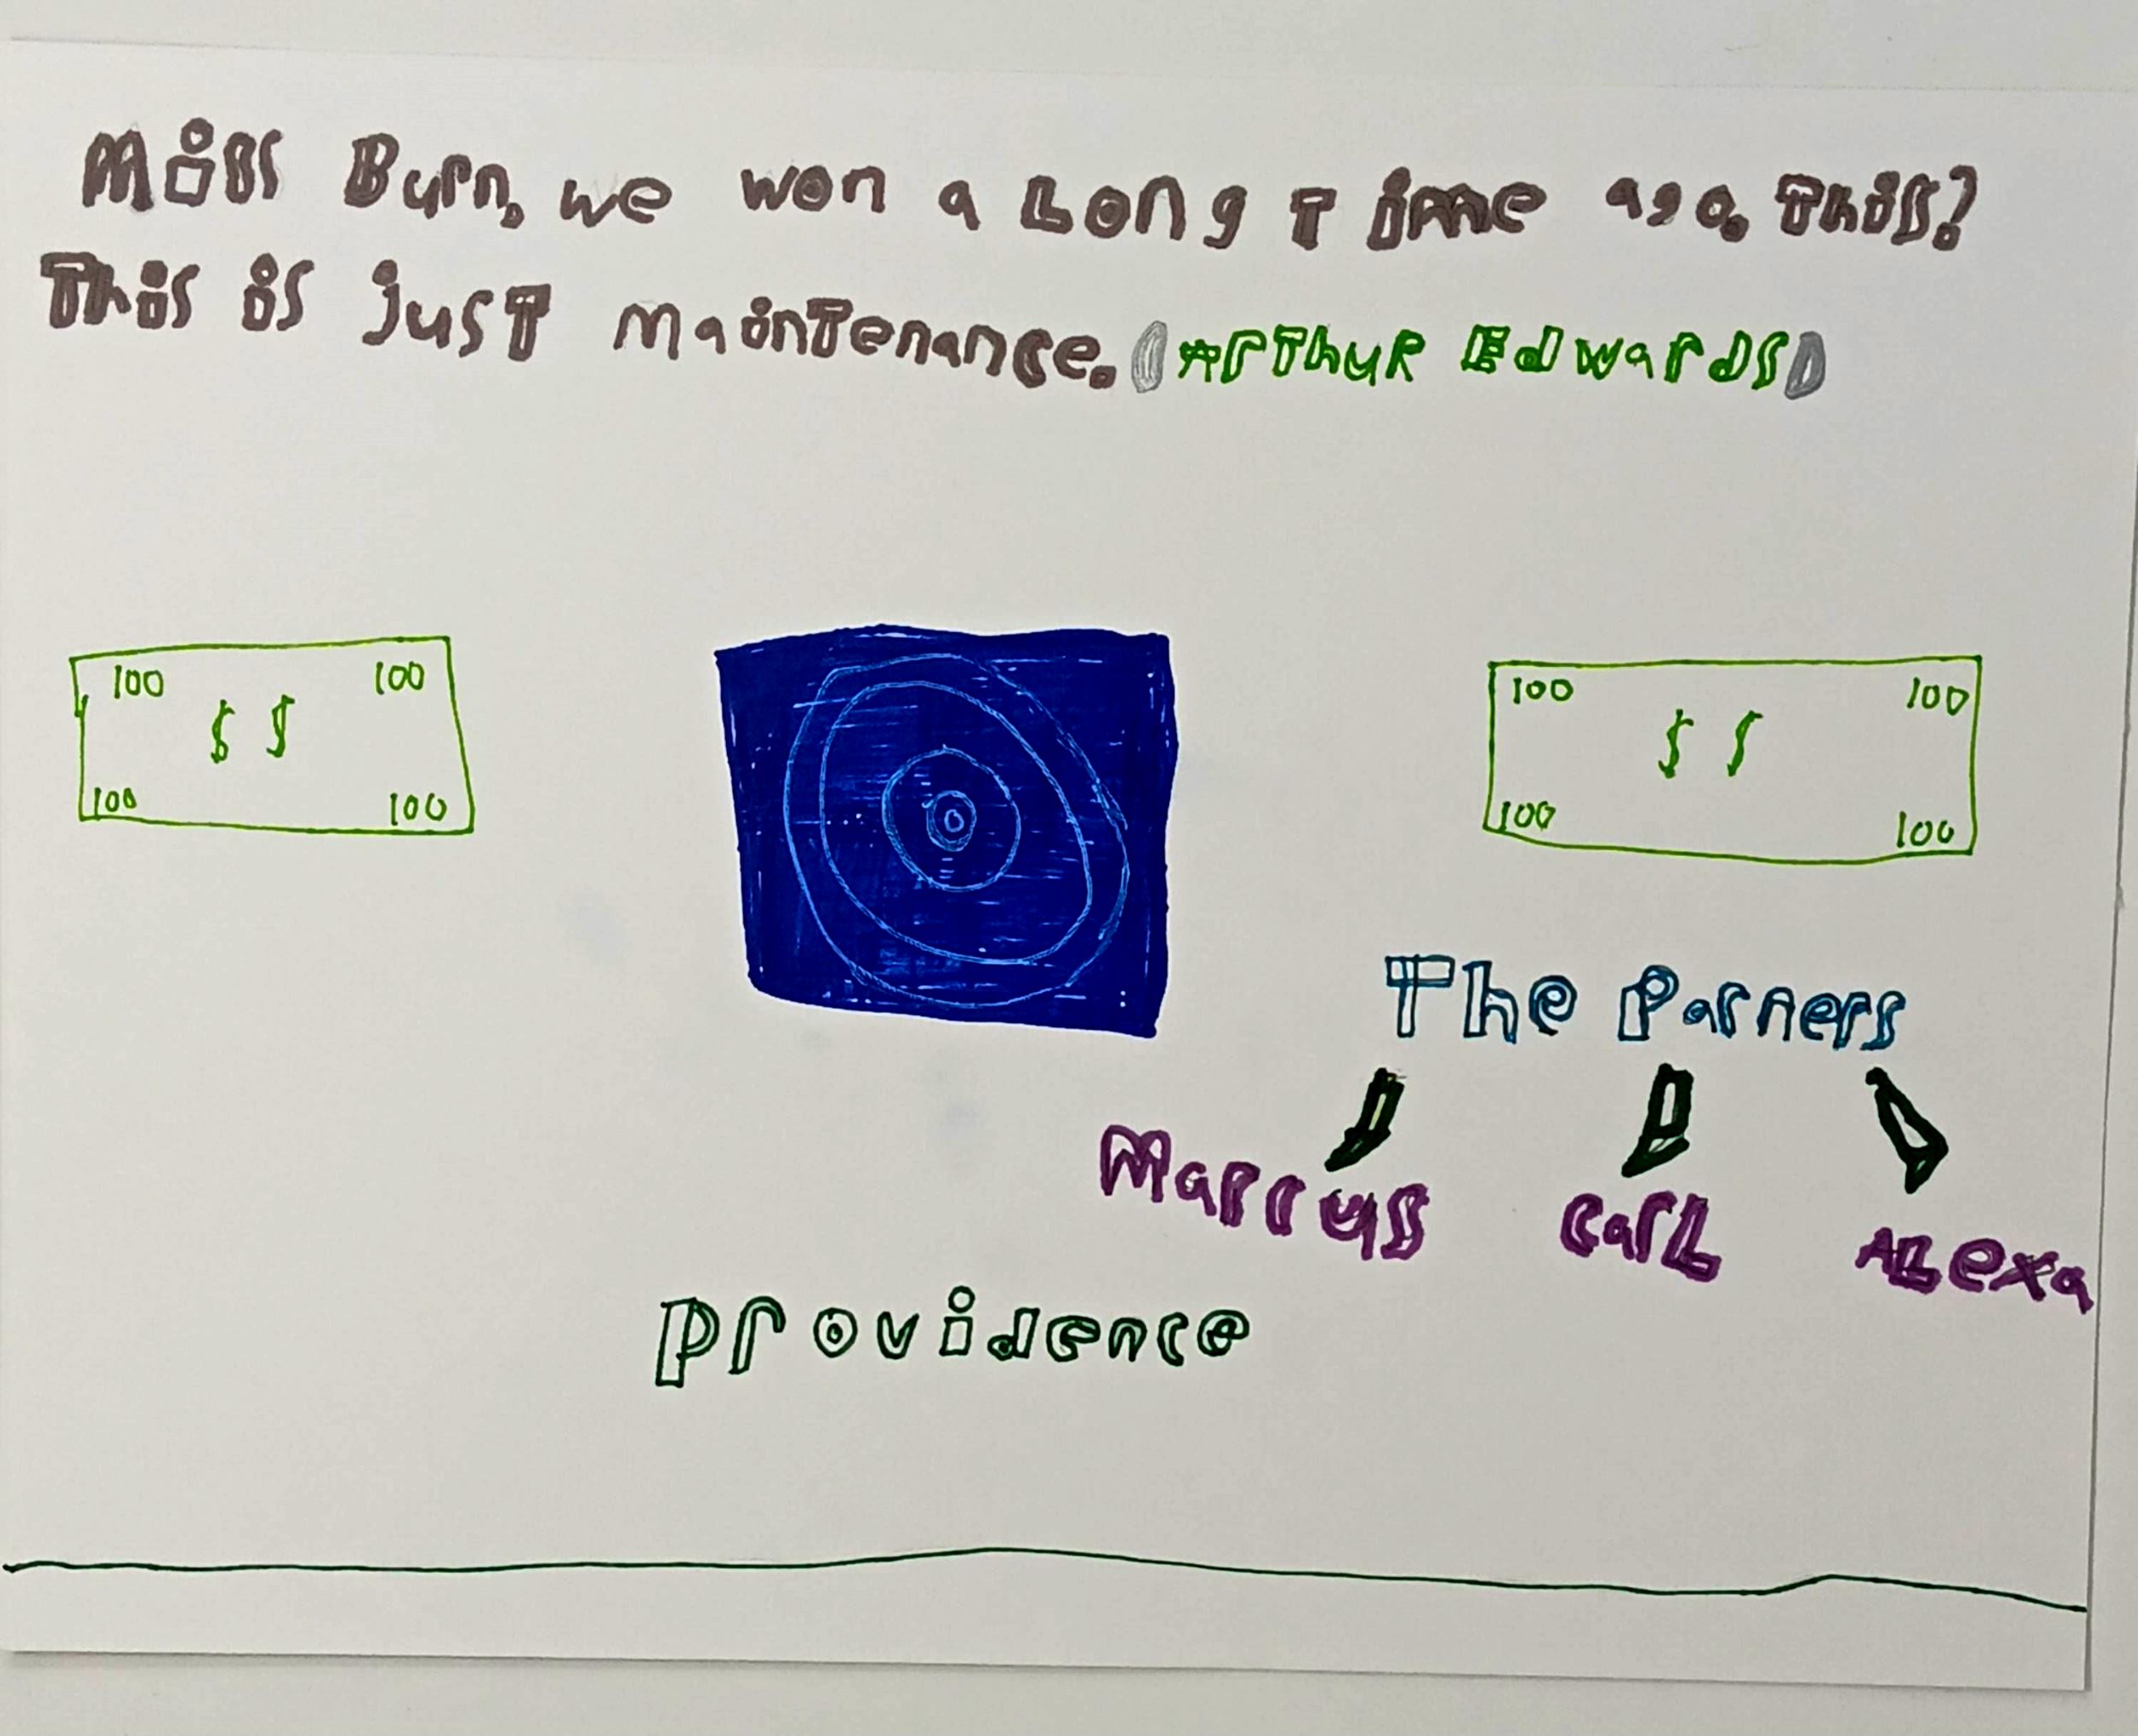 Miss Burn, we won a Long Time ago. This?
This is just maintenance. (Arthur Edwards)
100 100
$ $
100 100
100 100
$ $
100 100
The Parners
Marcus Carl Alexa
Providence